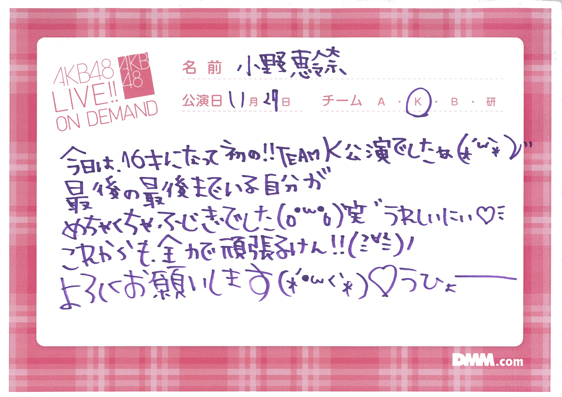 AKB48
LIVE!!
ON DEMAND
AKB
48
名前 小野恵令奈
公演日 11月29日 チーム A・K・B・研
今日は、16才になって初の!!TEAM K公演でしたね(*´ω`*)ﾉﾞ
最後の最後までいる自分が
めちゃくちゃふしぎでした(o°ω°o)笑 うれしいにぃ♡
これからも全力で頑張るけん!!(≧∀≦)ﾉ
よろしくお願いします(*´•ω<`*)♡うひょ――
DMM.com